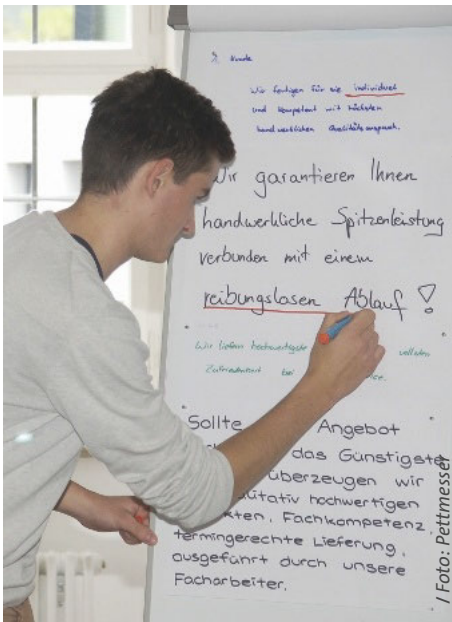 2. Kunde
Wir fertigen für sie individuell
und kompetent mit höchsten
handwerklichen Qualitätsanspruch.
Wir garantieren Ihnen
handwerkliche Spitzenleistung
verbunden mit einem
reibungslosen Ablauf!
Wir liefern hochwertigste vollsten
Zufriedenheit bei
Sollte Angebot
das Günstigste
überzeugen wir
hochwertigen
Fachkompetenz,
termingerechte Lieferung,
ausgeführt durch unsere
Facharbeiter.
/ Foto: Pettmesser